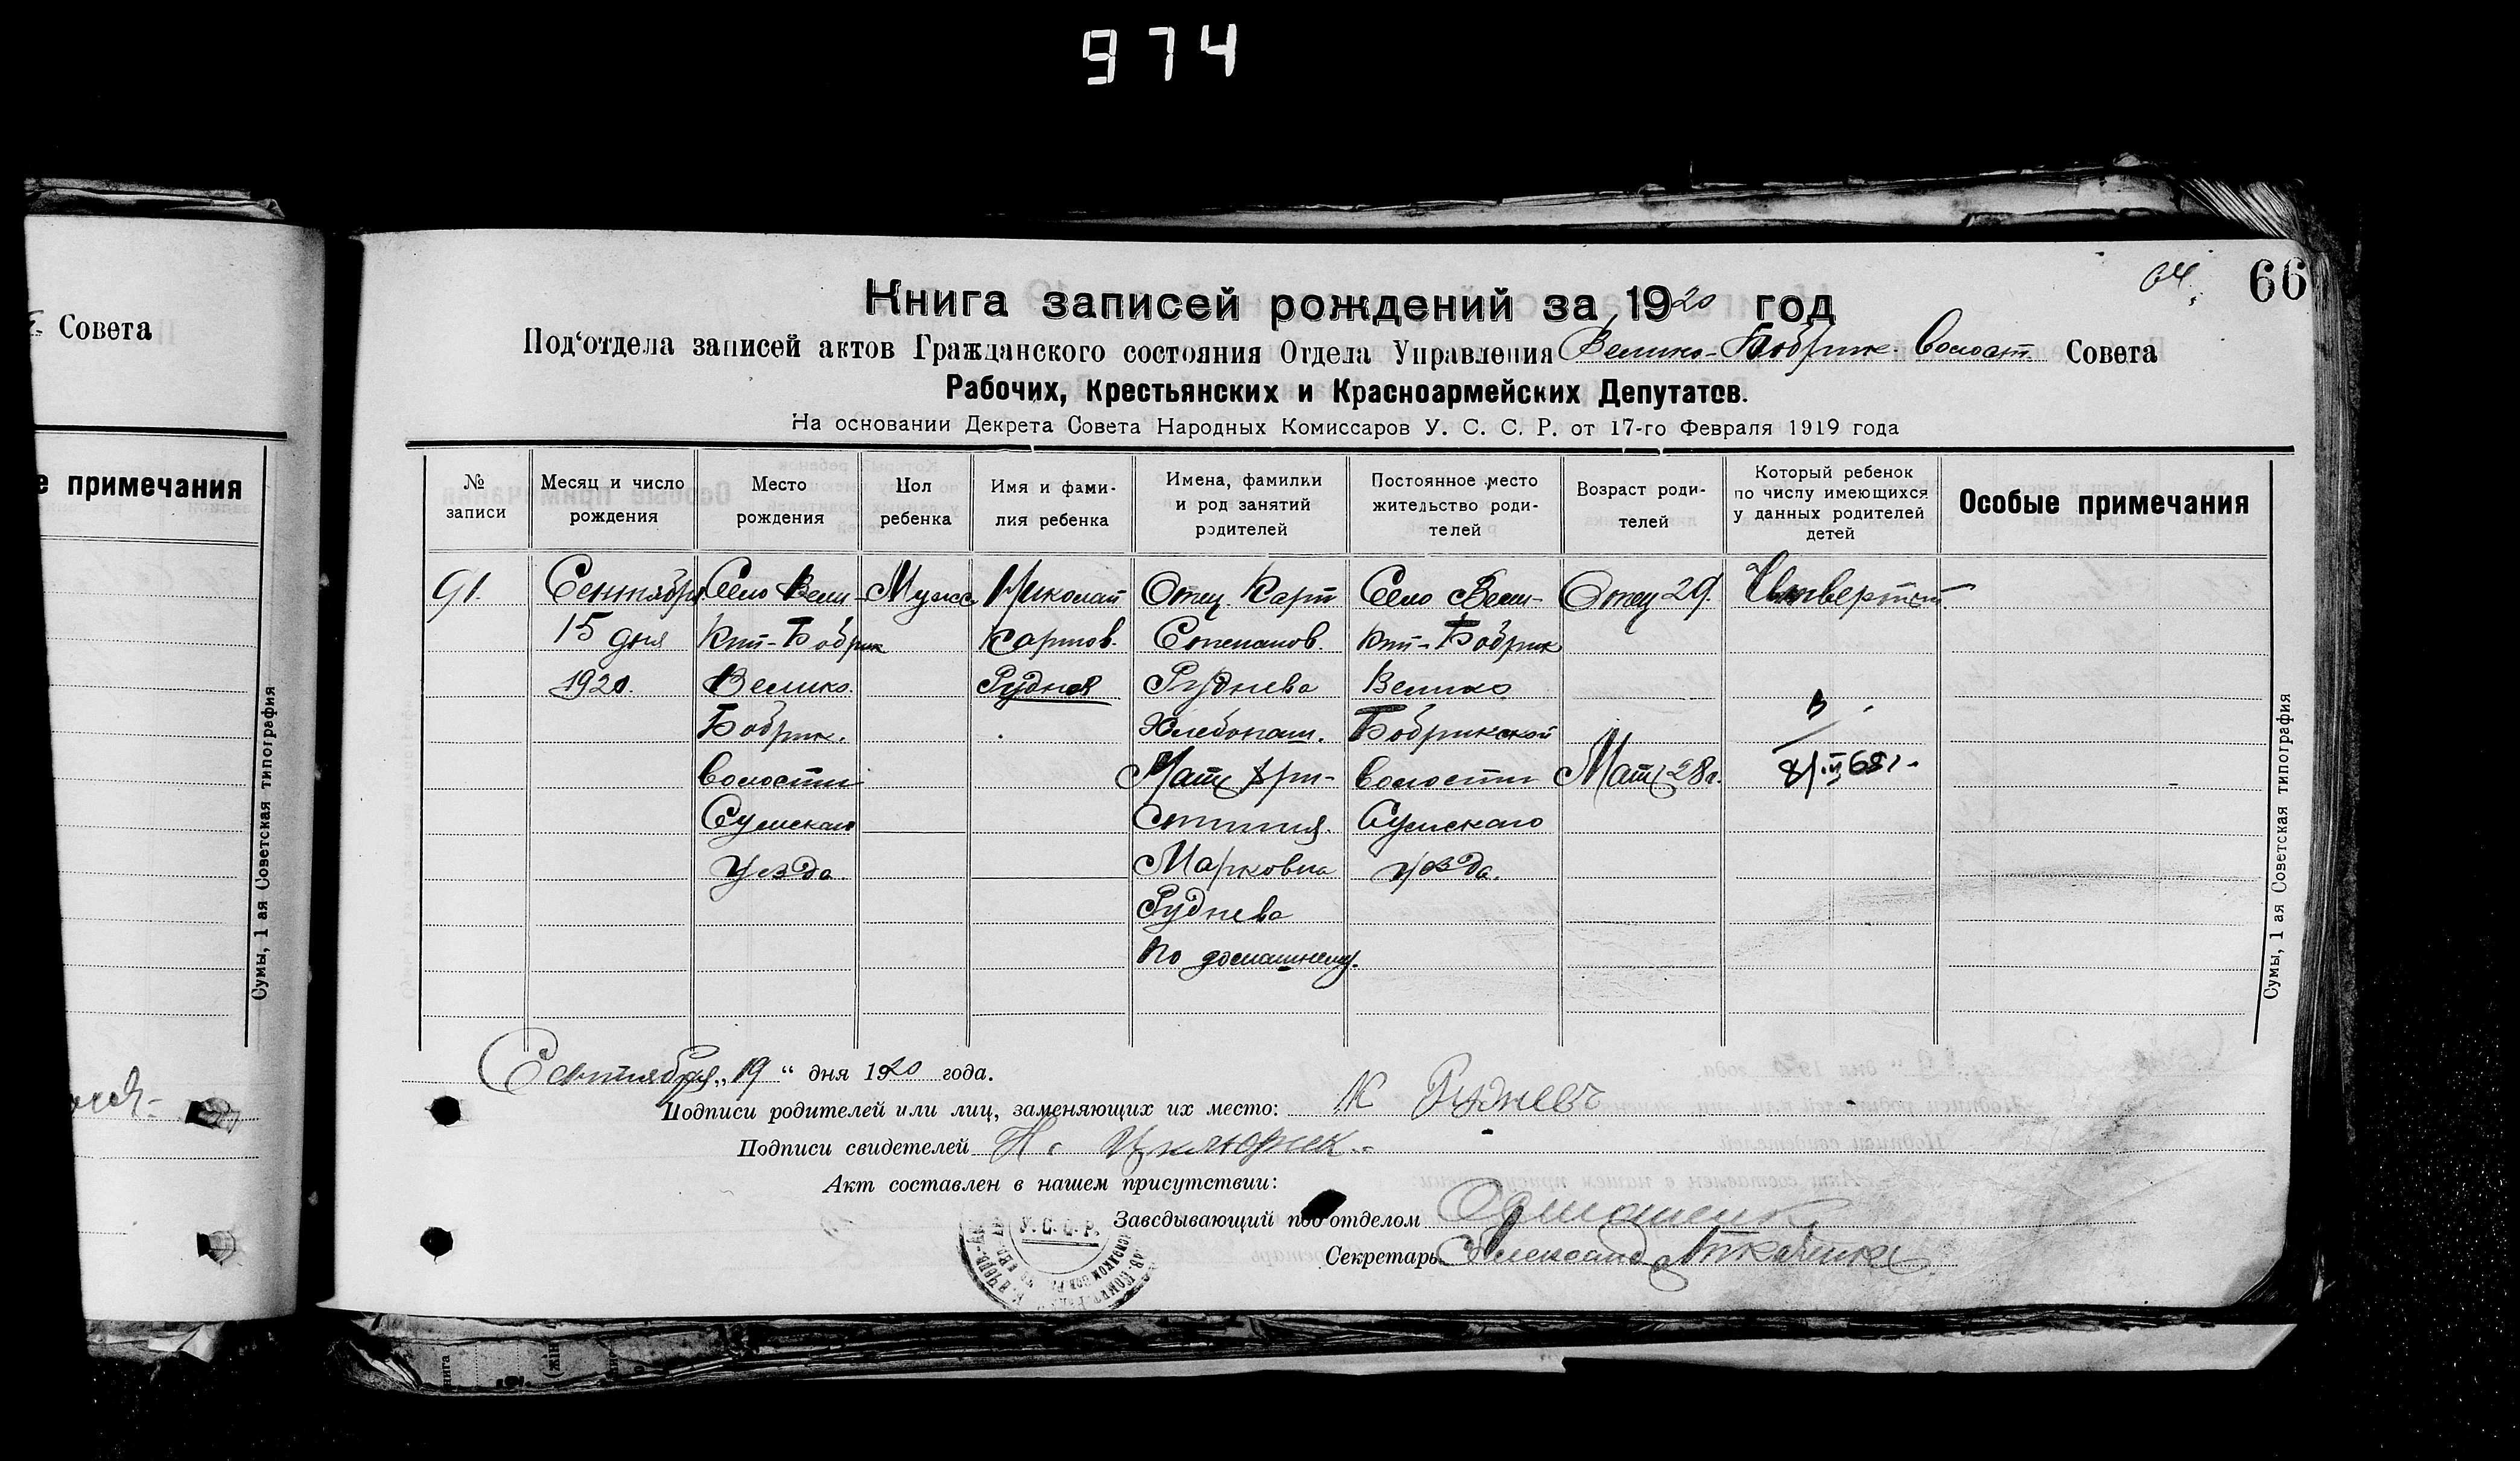 974
Совета
е примечания
Сумы, 1 ая Советская типография
64.
66
Книга записей рождений за 1920 год
Под'отдела записей актов Гражданского состояния Отдела Управления Велико-Бобрик. Волост. Совета
Рабочих, Крестьянских и Красноармейских Депутатов.
На основании Декрета Совета Народных Комиссаров У. С. С. Р. от 17-го Февраля 1919 года
№ записи
Месяц и число рождения
Место рождения
Пол ребенка
Имя и фами-
лия ребенка
Имена, фамилии
и род занятий
родителей
Постоянное место
жительство роди-
телей
Возраст роди-
телей
Который ребенок
по числу имеющихся
у данных родителей
детей
Особые примечания
91.
Сентября
15 дня
1920.
Село Вели-
кий-Бобрик
Велико.
Бобрик.
волости
Сумскаго
уезда
Мужс
Николай
Карпов.
Руднев
Отец Карп
Степанов.
Руднева
Хлебопаш.
Мать Хри-
стиния.
Марковна
Руднева
по домашнему.
Село Вели-
кий-Бобрик
Велико
Бобрикской
волости
Сумскаго
уезда.
Отец 29.
Мать 28 г.
Четвертый
В
Сумы, 1 ая Советская типография
Сентября „19“ дня 1920 года.
Подписи родителей или лиц, заменяющих их место: К Рудневъ
Подписи свидетелей Н.
Акт составлен в нашем присутствии:
Заведывающий под'отделом
Секретарь Александр Ткаченко
У. С. С. Р.